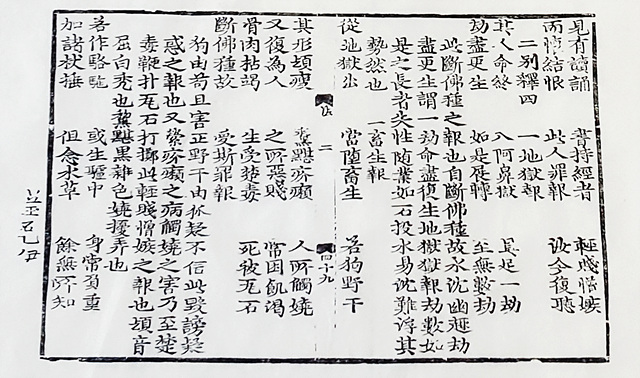 見有讀誦 書持經者 輕賤憎嫉
而懷結恨 此人罪報 汝今復聽
二別釋四 一地獄報
其人命終 入阿鼻獄 具足一劫
劫盡更生 如是展轉 至無數劫
此斷佛種之報也自斷佛種故永沈幽極劫
盡更生謂一劫命盡復生地獄獄報劫數如
是之長者失性隨業如石投水易沈難浮其
勢然也 二畜生報
從地獄出 當墮畜生 若狗野干
法 二 四十九
其形頝瘦 黧黮疥癩 人所觸嬈
又復為人 之所惡賤 常困飢渴
骨肉枯竭 生受楚毒 死被瓦石
斷佛種故 受斯罪報
狗由苟且害正野干由孤疑不信此毀謗疑
惑之報也又黧疥癩之病觸嬈之害乃至楚
毒鞭打瓦石打擲此輕賤憎嫉之報也頝音
屈白禿也黧黮黑雜色嬈擾弄也
若作駱駝 或生驢中 身常負重
加諸杖捶 但念水草 餘無所知